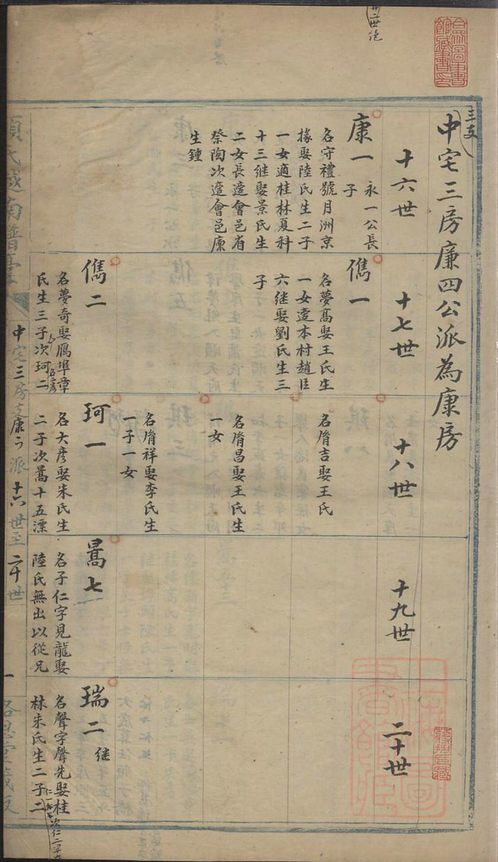 中宅三房廉四公派為康房
十六世
康一
永一公長子
名守禮號月洲京
掾娶陸氏生二子
一女適桂林夏科
十三继娶景氏生
二女長適會邑有
祭陶次適會邑康
生鍾
十七世
儁一
名夢髙娶王氏生
一女適本村趙臣
六继娶劉氏生三
子
儁二
名夢奇娶鴈埠章
氏生三子次珂二
十八世
名脩吉娶王氏
名脩昌娶王氏生
一女
名脩祥娶李氏生
一子一女
珂一
名大彦娶朱氏生
二子次暠十五漂
十九世
暠七
名子仁字見龍娶
陸氏無出以從兄
二十世
瑞二
继
名聲字聲先娶桂
林朱氏生二子二
中宅三房
派十六世至二十世
一